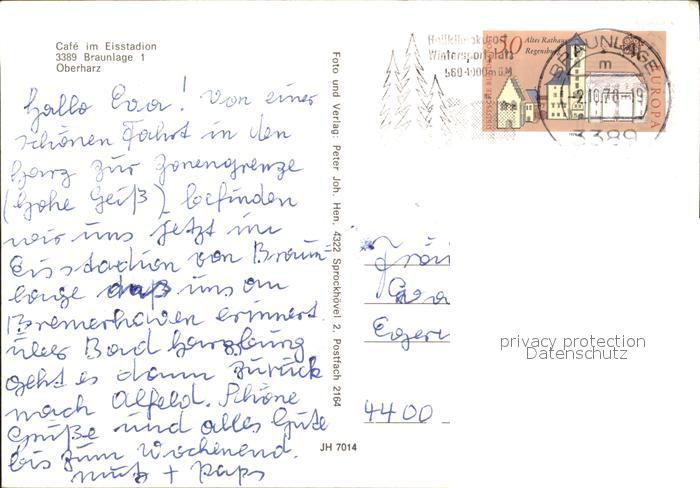 Café im Eisstadion
3389 Braunlage 1
Oberharz
Hallo Eva! Von einer
schönen Fahrt in den
Harz zur Zonengrenze
(Hohe Geiß) befinden
wir uns jetzt im
Eisstadion von Braun-
lage das uns an
Bremerhaven erinnert.
über Bad Harzburg
geht es dann zurück
nach Alfeld. Schöne
Grüße und alles Gute
bis zum Wochenend.
Muts + Paps
Foto und Verlag: Peter Joh. Hen, 4322 Sprockhövel 2, Postfach 2164
JH 7014
Heilklimakurort
Wintersportplatz
560-1000m ü.M
30
Altes Rathaus
Regensburg
DEUTSCHE BUNDESPOST
EUROPA
BRAUNLAGE
m
-2.10.78-19
3389
Fräu
Eva
Egert
4400
privacy protection
Datenschutz